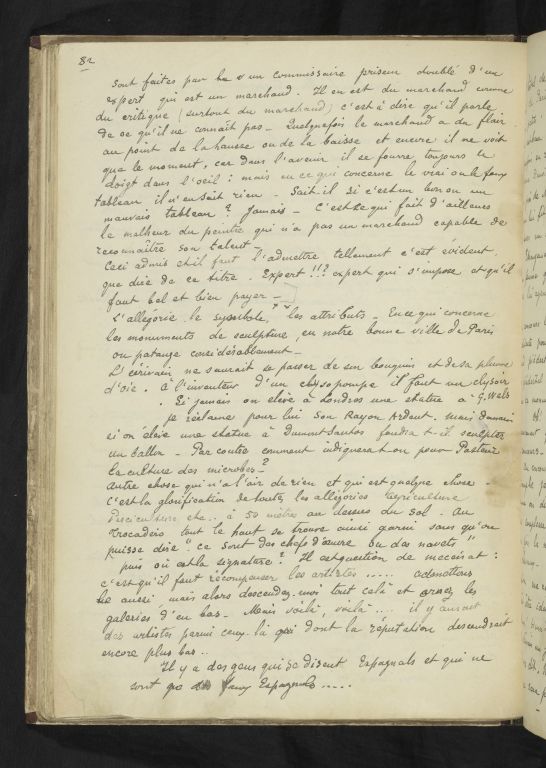 82
sont faites par un commissaire priseur doublé d'un
expert qui est un marchand. Il en est du marchand comme
du critique (surtout du marchand) c'est à dire qu'il parle
de ce qu'il ne connaît pas - Quelquefois le marchand a du flair
au point de la hausse ou de la baisse et encore il ne voit
que le moment, car dans l'avenir il se fourre toujours le
doigt dans l'oeil : mais en ce qui concerne le vrai ou le faux
tableau il n'en sait rien - Sait il si c'est un bon ou un
mauvais tableau ? Jamais - C'est ce qui fait d'ailleurs
le malheur du peintre qui n'a pas un marchand capable de
reconnaître son talent -
Ceci admis et il faut l'admettre tellement c'est évident,
que dire de ce titre. Expert !!? expert qui s'impose et qu'il
faut bel et bien payer -
L'allégorie, le symbole, les attributs - En ce qui concerne
les monuments de sculpture, en notre bonne ville de Paris
on patauge considérablement -
L'écrivain ne saurait se passer de son bouquin et de sa plume
d'oie. à l'inventeur d'un clysopompe il faut un clysoir
. Si jamais on elève à Londres une statue à G. Wels
je réclame pour lui son Rayon Ardent, mais demain
si on élève une statue à Dumont Santos faudra-t-il sculpter
un ballon - Par contre comment indiquerat on pour Pasteur
la culture des microbes ?
Autre chose qui n'a l'air de rien et qui est quelque chose -
C'est la glorification de toutes les allégories Agriculture
Pisciculture etc.. à 50 mètres au dessus du sol. Au
Trocadéro tout le haut se trouve ainsi garni sans qu'on
puisse dire : ce sont des chefs d'œuvre ou des navets"
puis où est la signature ? Il est question de mecaisat :
c'est qu'il faut récompenser les artistes ..... admettons
le aussi, mais alors descendez moi tout celà et ornez les
galeries d'en bas - Mais voilà, voilà .... il y aurait
des artistes parmi ceux-là dont la réputation descendrait
encore plus bas..
Il y a des gens qui se disent Espagnols et qui ne
sont que faux Espagnols .....